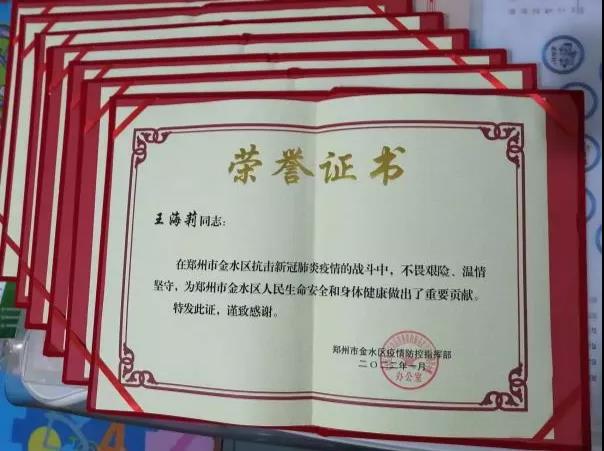 荣誉证书
王海莉同志：
在郑州市金水区抗击新冠肺炎疫情的战斗中，不畏艰险、温情
坚守，为郑州市金水区人民生命安全和身体健康做出了重要贡献。
特发此证，谨致感谢。
郑州市金水区疫情防控指挥部
二〇二二年一月
办公室